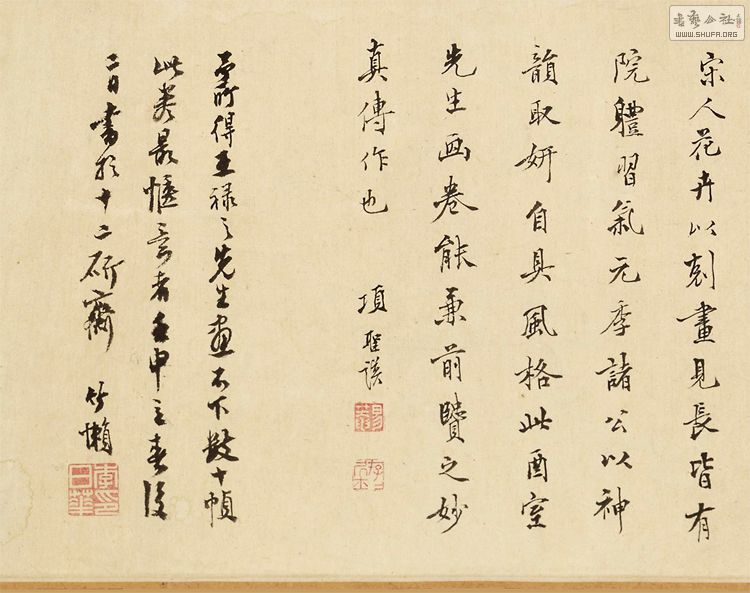 宋人花卉以刻畫見長皆有
院體習氣元季諸公以神
韻取妍自具風格此酉室
先生画卷能兼前賢之妙
真傳作也
項聖謨
余所得王祿之先生畫不下數十幀
此卷最愜意者壬申立春後
二日書於十二研齋
竹懶
李日華
書藝公社
WWW.SHUFA.ORG